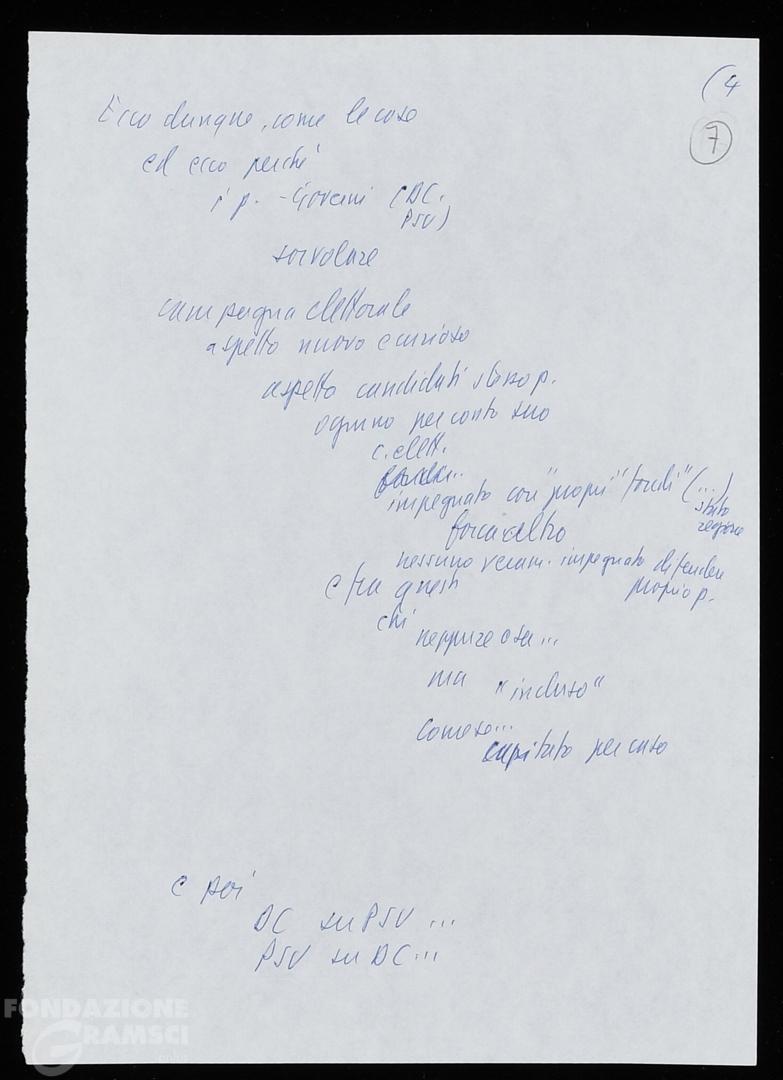 (4
7
Ecco dunque, come le cose
ed ecco perché
i p. - Governi (DC.
PSU)
sorvolare
campagna elettorale
aspetto nuovo e curioso
aspetto candidati stesso p.
ognuno per conto suo
c. elett.
impegnato con "propri" fondi" (...)
stato
regione
nessuno veram. impegnato difendere
proprio p.
e fra questi
chi
neppure osa...
ma "incluso"
come se...
capitato per caso
e poi
DC su PSU ...
PSU su DC...
FONDAZIONE
GRAMSCI